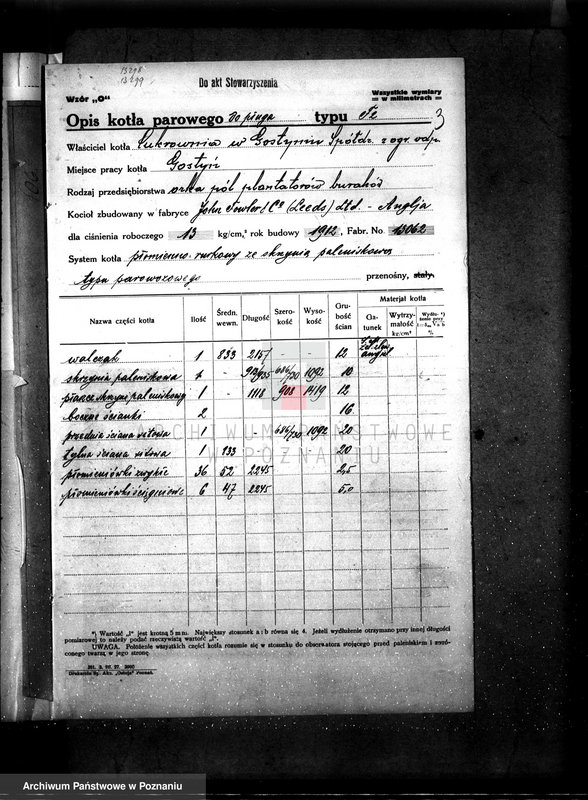 13298
13299
Do akt Stowarzyszenia
Wzór „O"
Wszystkie wymiary
w milimetrach
Opis kotła parowego do pługa typu Fe 3
Właściciel kotła Cukrownia w Gostyniu Spółdz. z ogr. odp.
Miejsce pracy kotła Gostyń
Rodzaj przedsiębiorstwa orka pól plantatorów buraków
Kocioł zbudowany w fabryce John Fowler & Co (Leeds) Ltd. - Anglja
dla ciśnienia roboczego 13 kg/cm,² rok budowy 1912, Fabr. No. 13062
System kotła płomienno-rurkowy ze skrzynią paleniskową
typu parowozowego przenośny, stały.
Nazwa części kotła Ilość Średn. wewn. Długość Szerokość Wysokość Grubość ścian Materjał kotła Gatunek Wytrzymałość kg/cm²
walczak 1 833 2157 - - 12
skrzynia paleniskowa 1 - 1092 10
płaszcz skrzyni paleniskowej 1 - 1118 908 1419 12
boczne ścianki 2 16
przednia ściana sitowa 1 686/730 1092 20
tylna ściana sitowa 1 833 - - 20
płomieniówki zwykłe 36 52 2245 2,5
płomieniówki ściągowe 6 47 2245 5,0
*) Wartość „l" jest krotną 5 mm. Największy stosunek a : b równa się 4. Jeżeli wydłużenie otrzymano przy innej długości
pomiarowej to należy podać rzeczywistą wartość „l".
UWAGA. Położenie wszystkich części kotła rozumie się w stosunku do obserwatora stojącego przed paleniskiem i zwróconego
twarzą w jego stronę.
Drukarnia Sp. Akc. „Ostoja" Poznań.
ARCHIWUM PAŃSTWOWE
W POZNANIU
Archiwum Państwowe w Poznaniu